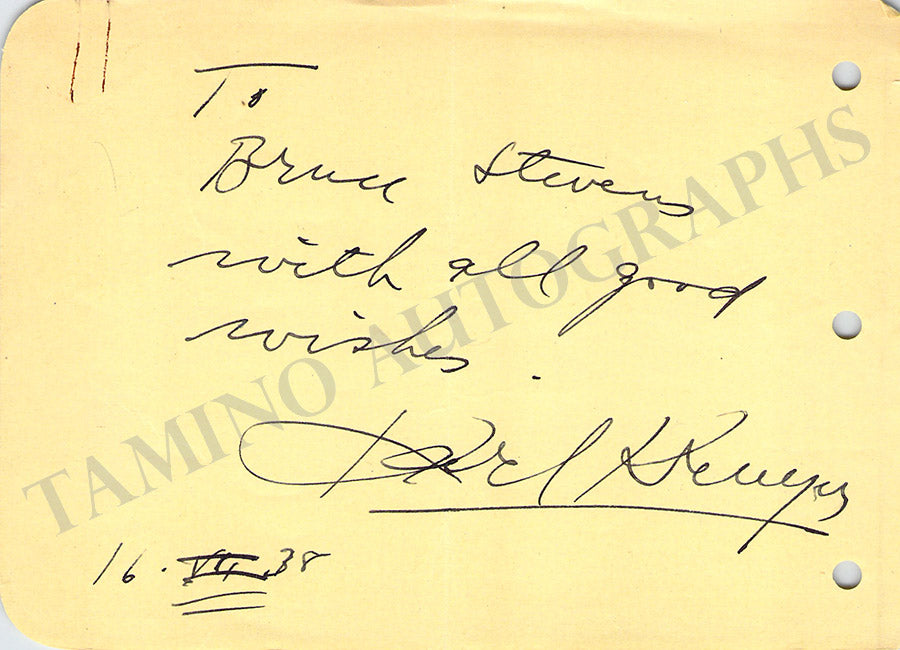 To
Bruce Stevens
with all good
wishes.
Karl Krueger
16. VII. 38
TAMINO AUTOGRAPHS